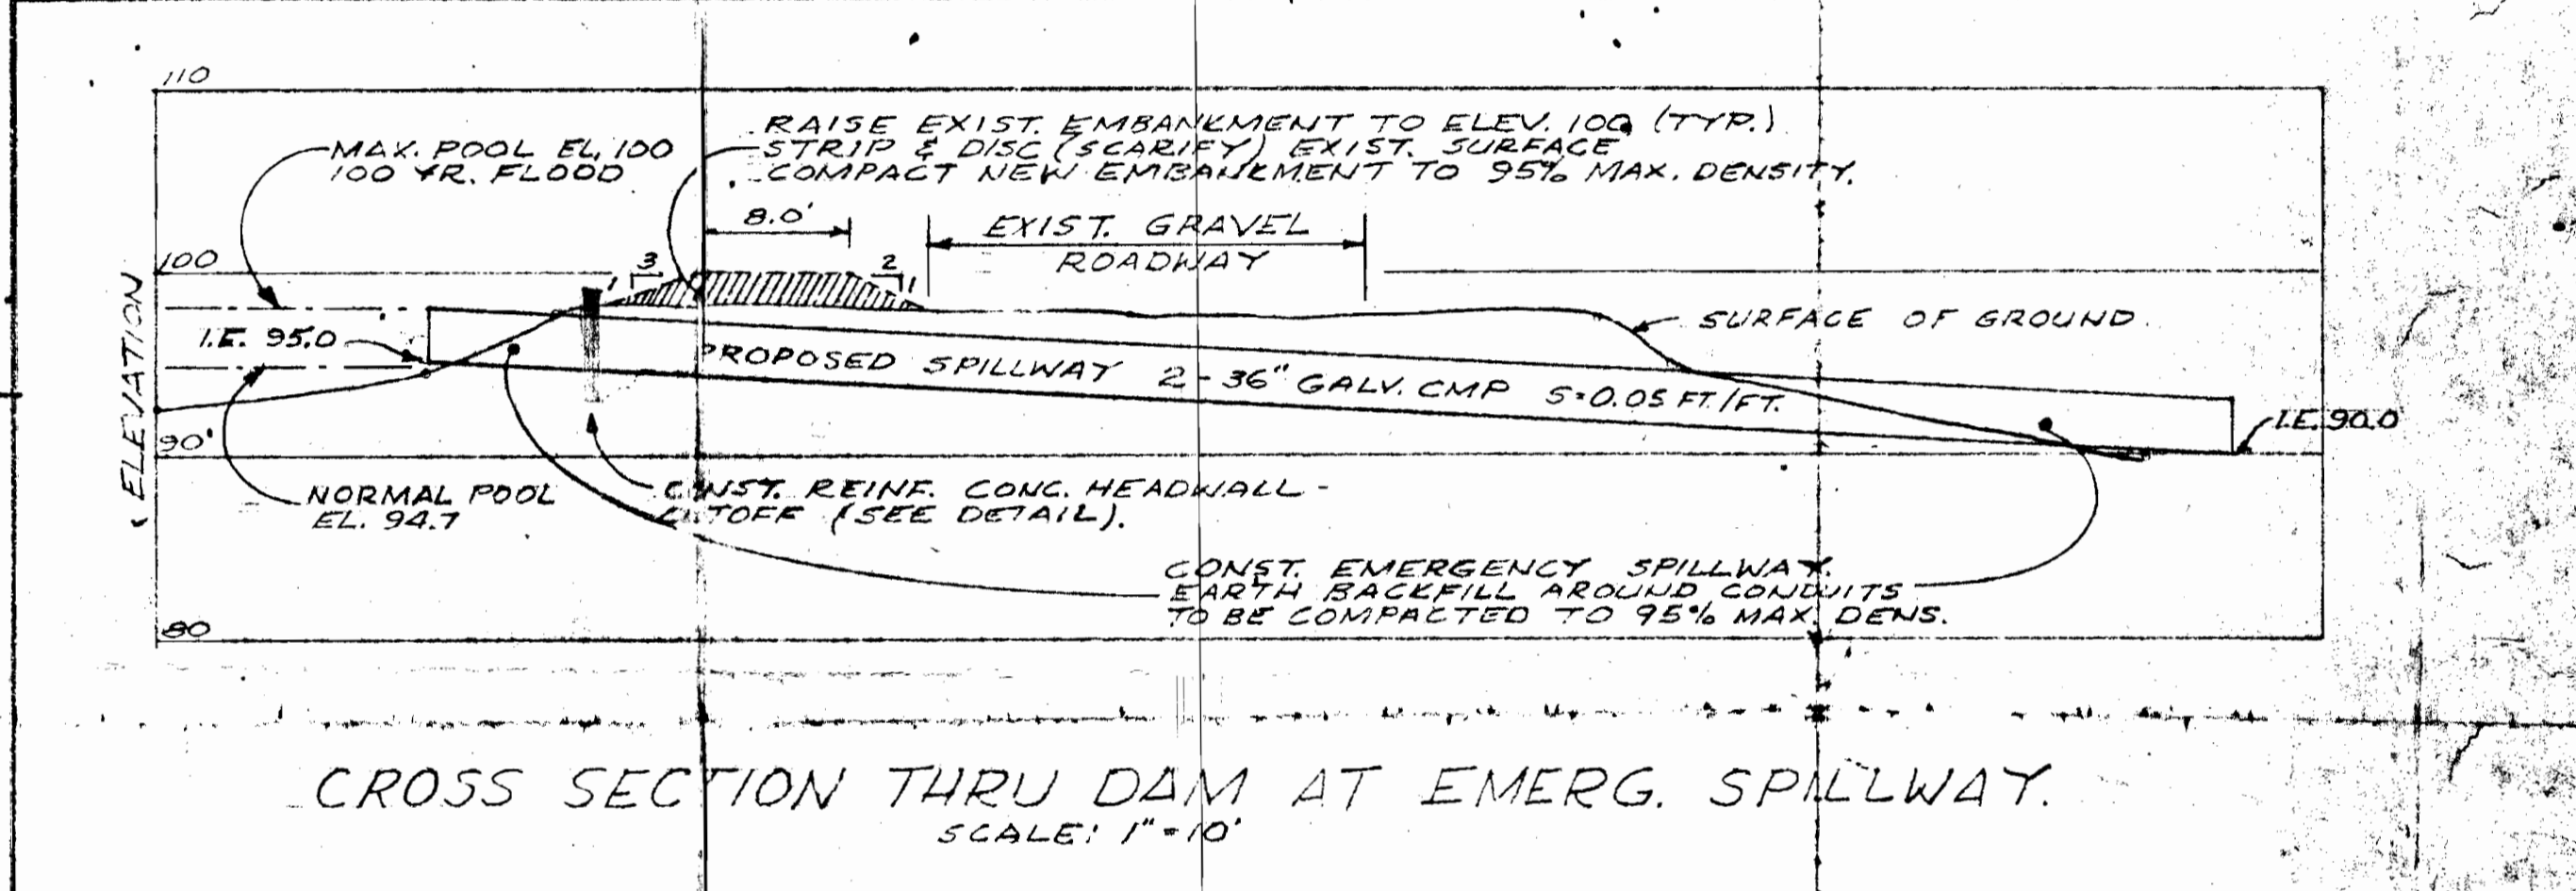 110
RAISE EXIST. EMBANKMENT TO ELEV. 100 (TYP.)
STRIP & DISC (SCARIFY) EXIST. SURFACE
COMPACT NEW EMBANKMENT TO 95% MAX. DENSITY.
MAX. POOL EL. 100
100 YR. FLOOD
8.0'
EXIST. GRAVEL
ROADWAY
100
3
1
2
1
ELEVATION
I.E. 95.0
SURFACE OF GROUND
PROPOSED SPILLWAY 2-36" GALV. CMP S=0.05 FT./FT.
I.E. 90.0
90'
NORMAL POOL
EL. 94.7
CONST. REINF. CONC. HEADWALL-
CUTOFF (SEE DETAIL).
CONST. EMERGENCY SPILLWAY.
EARTH BACKFILL AROUND CONDUITS
TO BE COMPACTED TO 95% MAX. DENS.
80
CROSS SECTION THRU DAM AT EMERG. SPILLWAY.
SCALE: 1"=10'